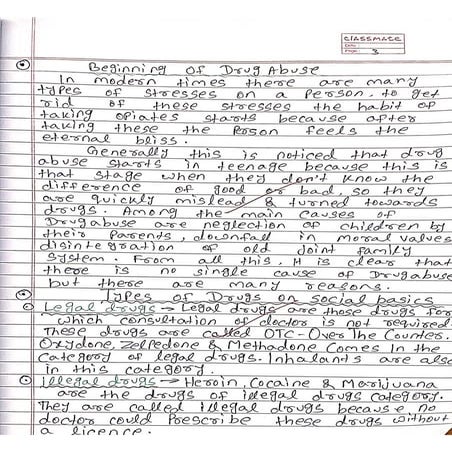 classmate
Date
Page 3
Beginning of Drug Abuse
In modern times there are many
types of stresses on a Person. to get
rid of these stresses the habit of
taking opiates starts because after
taking these the Person feels the
eternal bliss.
Generally this is noticed that drug
abuse starts in teenage because this is
that stage when they don't know the
difference of good or bad, so they
are quickly mislead & turned towards
drugs. Among the main causes of
Drug abuse are neglection of children by
their Parents, downfall in moral values
disintegration of old joint family
System. From all this, it is clear that
there is no single cause of Drug abuse
but there are many reasons.
Types of Drugs on social basics
Legal drugs → Legal drugs are those drugs for
which consultation of doctor is not required.
These drugs are called OTC - Over The Counter.
Oxydone, Zelpedone & Methadone Comes In the
Category of legal drugs. Inhalants are also
in this category.
illegal drugs → Heroin, Cocaine & Marijuana
are the drugs of illegal drugs category.
They are called illegal drugs because no
doctor could Prescribe these drugs without
a licence.